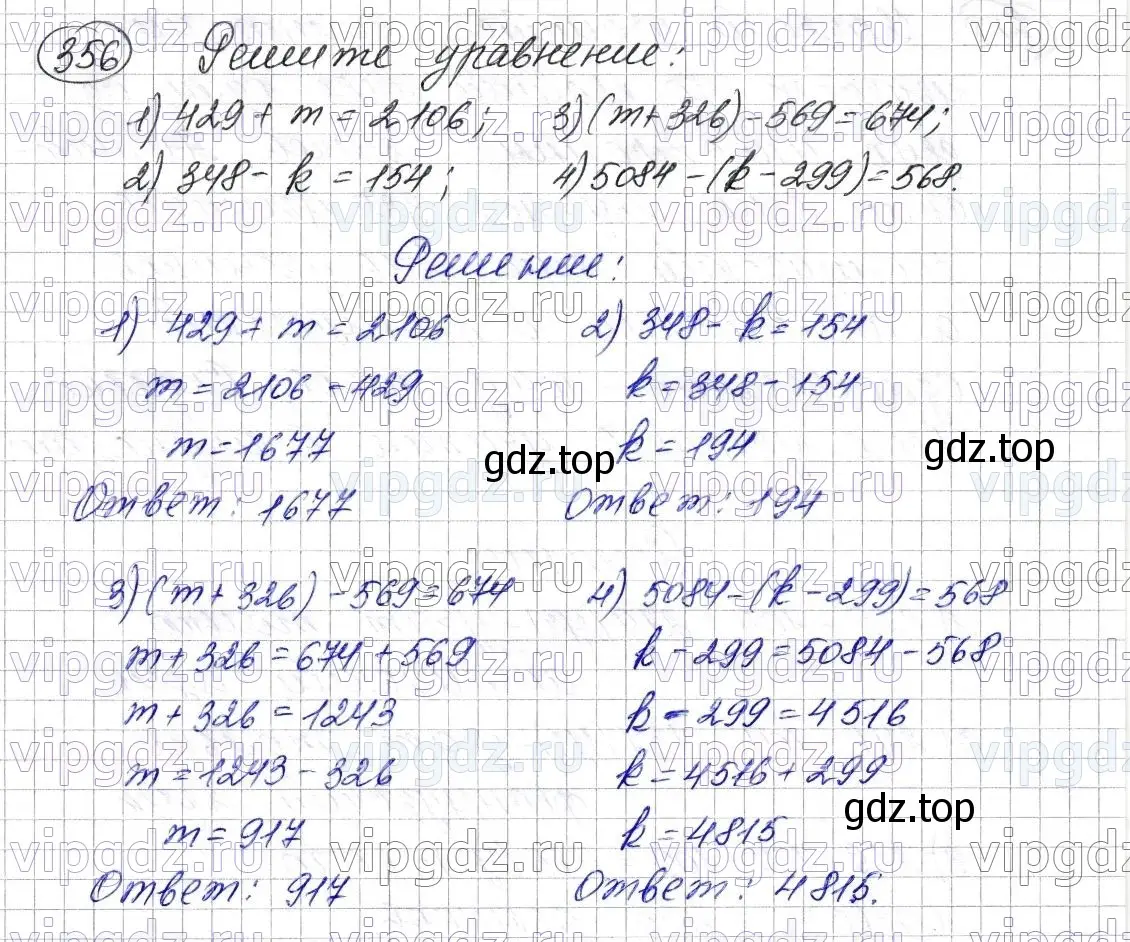 356 Решите уравнение:
1) 429 + m = 2106; 3) (m + 326) - 569 = 674;
2) 348 - k = 154; 4) 5084 - (k - 299) = 568.
Решение:
1) 429 + m = 2106
m = 2106 - 429
m = 1677
Ответ: 1677
2) 348 - k = 154
k = 348 - 154
k = 194
Ответ: 194
3) (m + 326) - 569 = 674
m + 326 = 674 + 569
m + 326 = 1243
m = 1243 - 326
m = 917
Ответ: 917
4) 5084 - (k - 299) = 568
k - 299 = 5084 - 568
k - 299 = 4516
k = 4516 + 299
k = 4815
Ответ: 4815.
gdz.top
gdz.top
gdz.top
vipgdz.ru